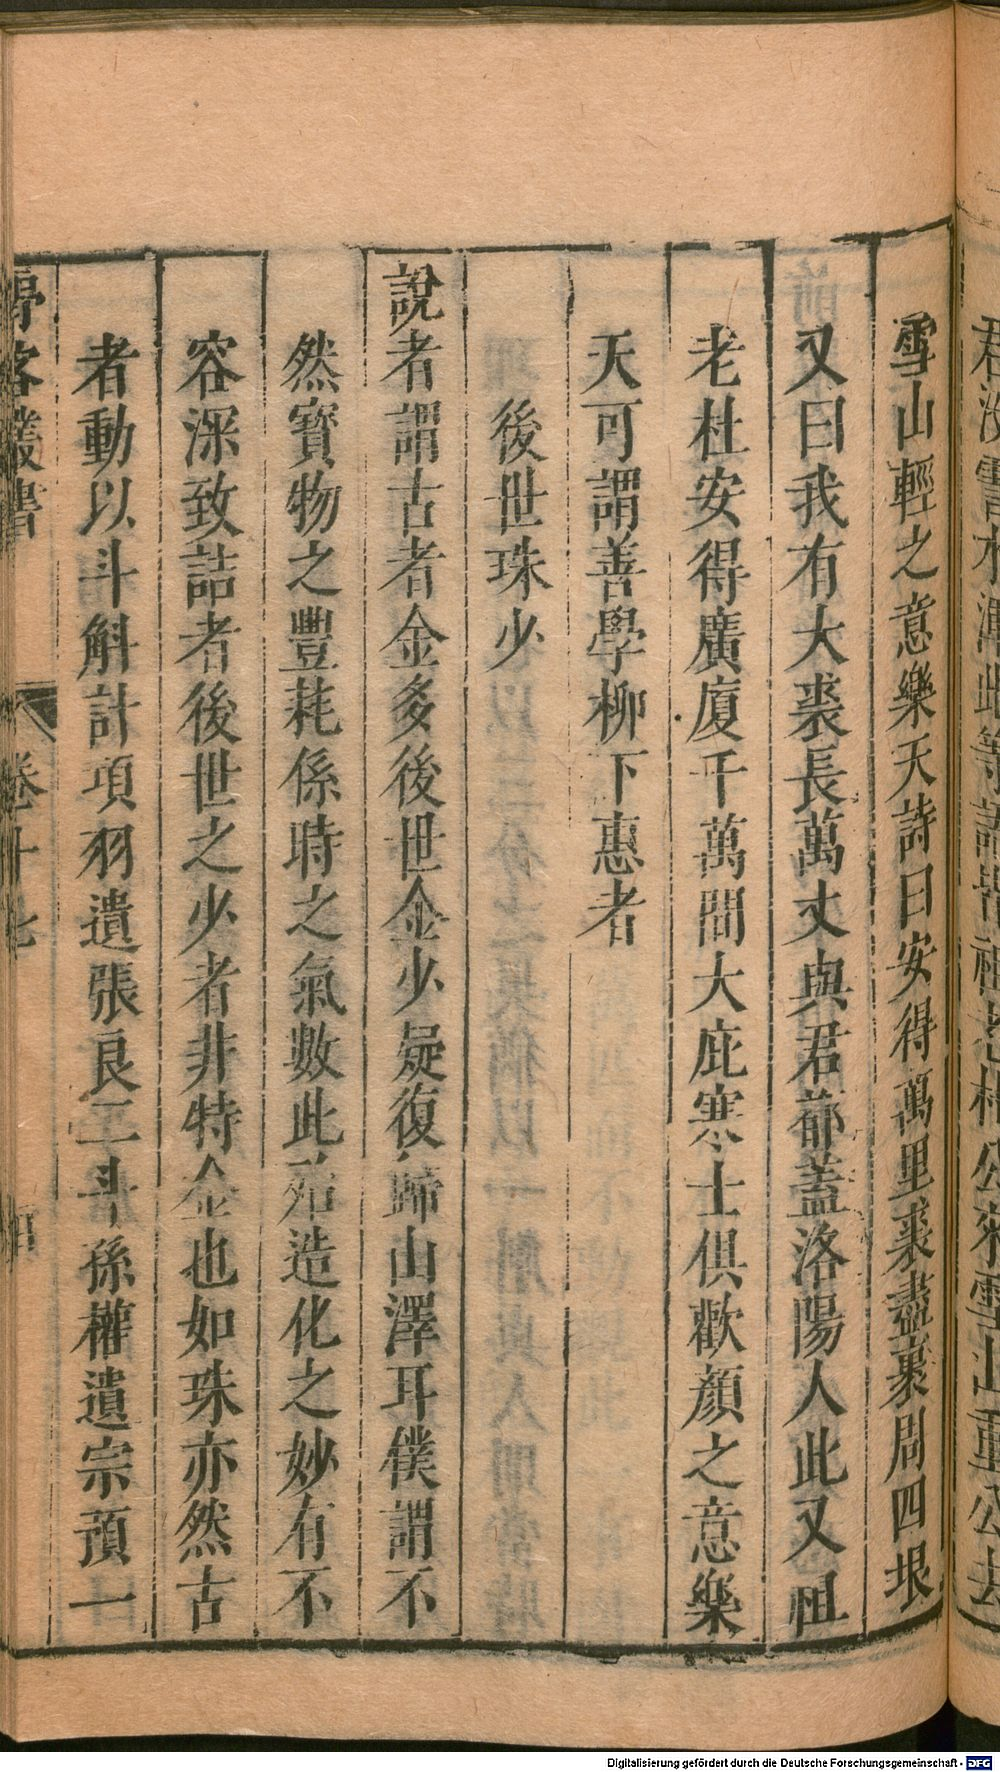 雪山輕之意樂天詩曰安得萬里裘盡裹周四垠
又曰我有大裘長萬丈與君都蓋洛陽人此又祖
老杜安得廣廈千萬間大庇寒士俱歡顏之意樂
天可謂善學柳下惠者
後世珠少
說者謂古者金多後世金少疑復歸山澤耳僕謂不
然寶物之豐耗係時之氣數此殆造化之妙有不
容深致詰者後世之少者非特金也如珠亦然古
者動以斗斛計項羽遺張良二斗孫權遺宗預一
客叢書
卷十七
Digitalisierung gefördert durch die Deutsche Forschungsgemeinschaft - DFG